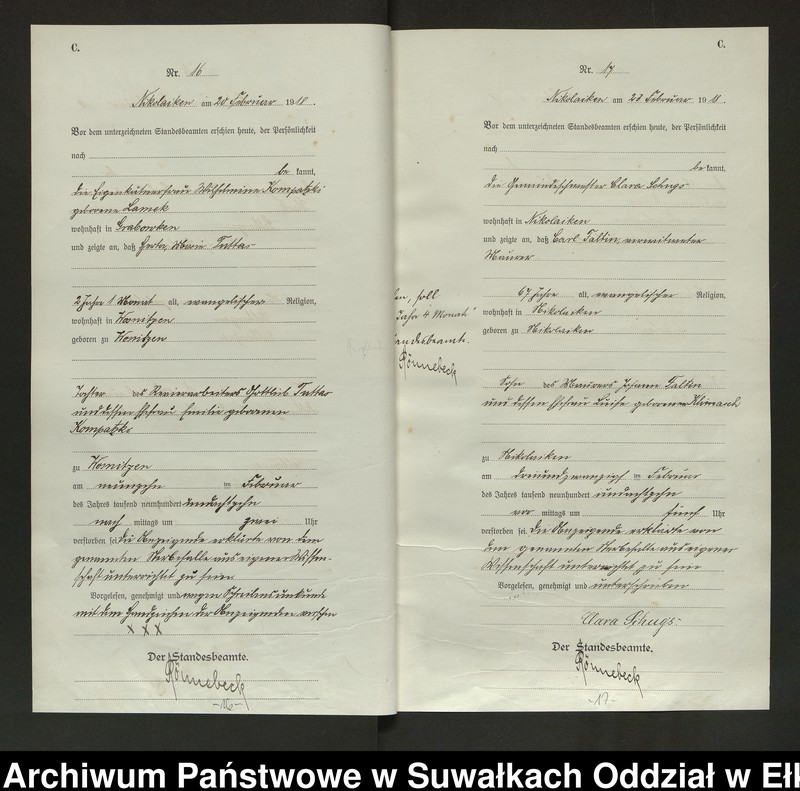 C.
Nr. 16
Nikolaiken am 20 Februar 1918.
Vor dem unterzeichneten Standesbeamten erschien heute, der Persönlichkeit
nach
be kannt,
die Eigenkätnerfrau Wilhelmine Kompatzki
geborene Lamek
wohnhaft in Grabowken
und zeigte an, daß Herta, Marie Tuttas
2 Jahre 1 Monat alt, evangelischer Religion,
wohnhaft in
geboren zu
Tochter des Revierarbeiters Gottlieb Tuttas
und dessen Ehefrau Emilie geborenen
Kompatzki
zu
am neunzehn im Februar
des Jahres tausend neunhundert undachtzehn
nach mittags um zwei Uhr
verstorben sei. Die Anzeigende erklärte von dem
genannten Sterbefalle aus eigener Wissen-
schaft unterrichtet zu sein.
Vorgelesen, genehmigt und wegen Schreibensunkunde
mit dem Handzeichen der Anzeigenden versehen
x x x
Der Standesbeamte.
Rönnebeck
-16-
soll
Jahr 4 Monat"
andesbeamte.
Rönnebeck
C.
Nr. 17
Nikolaiken am 23 Februar 1918.
Vor dem unterzeichneten Standesbeamten erschien heute, der Persönlichkeit
nach
be kannt,
die Gemeindeschwester Clara Schugs
wohnhaft in Nikolaiken
und zeigte an, daß Carl Faltin, verwitweter
Maurer
67 Jahre alt, evangelischer Religion,
wohnhaft in Nikolaiken
geboren zu Nikolaiken
Sohn des Maurers Johann Faltin
und dessen Ehefrau Luise geborenen Klimasch
zu Nikolaiken
am dreiundzwanzigsten im Februar
des Jahres tausend neunhundert undachtzehn
vor mittags um fünf Uhr
verstorben sei. Die Anzeigende erklärte von
dem genannten Sterbefalle aus eigener
Wissenschaft unterrichtet zu sein
Vorgelesen, genehmigt und unterschrieben
Clara Schugs.
Der Standesbeamte.
Rönnebeck
-17-
Archiwum Państwowe w Suwałkach Oddział w Ełk